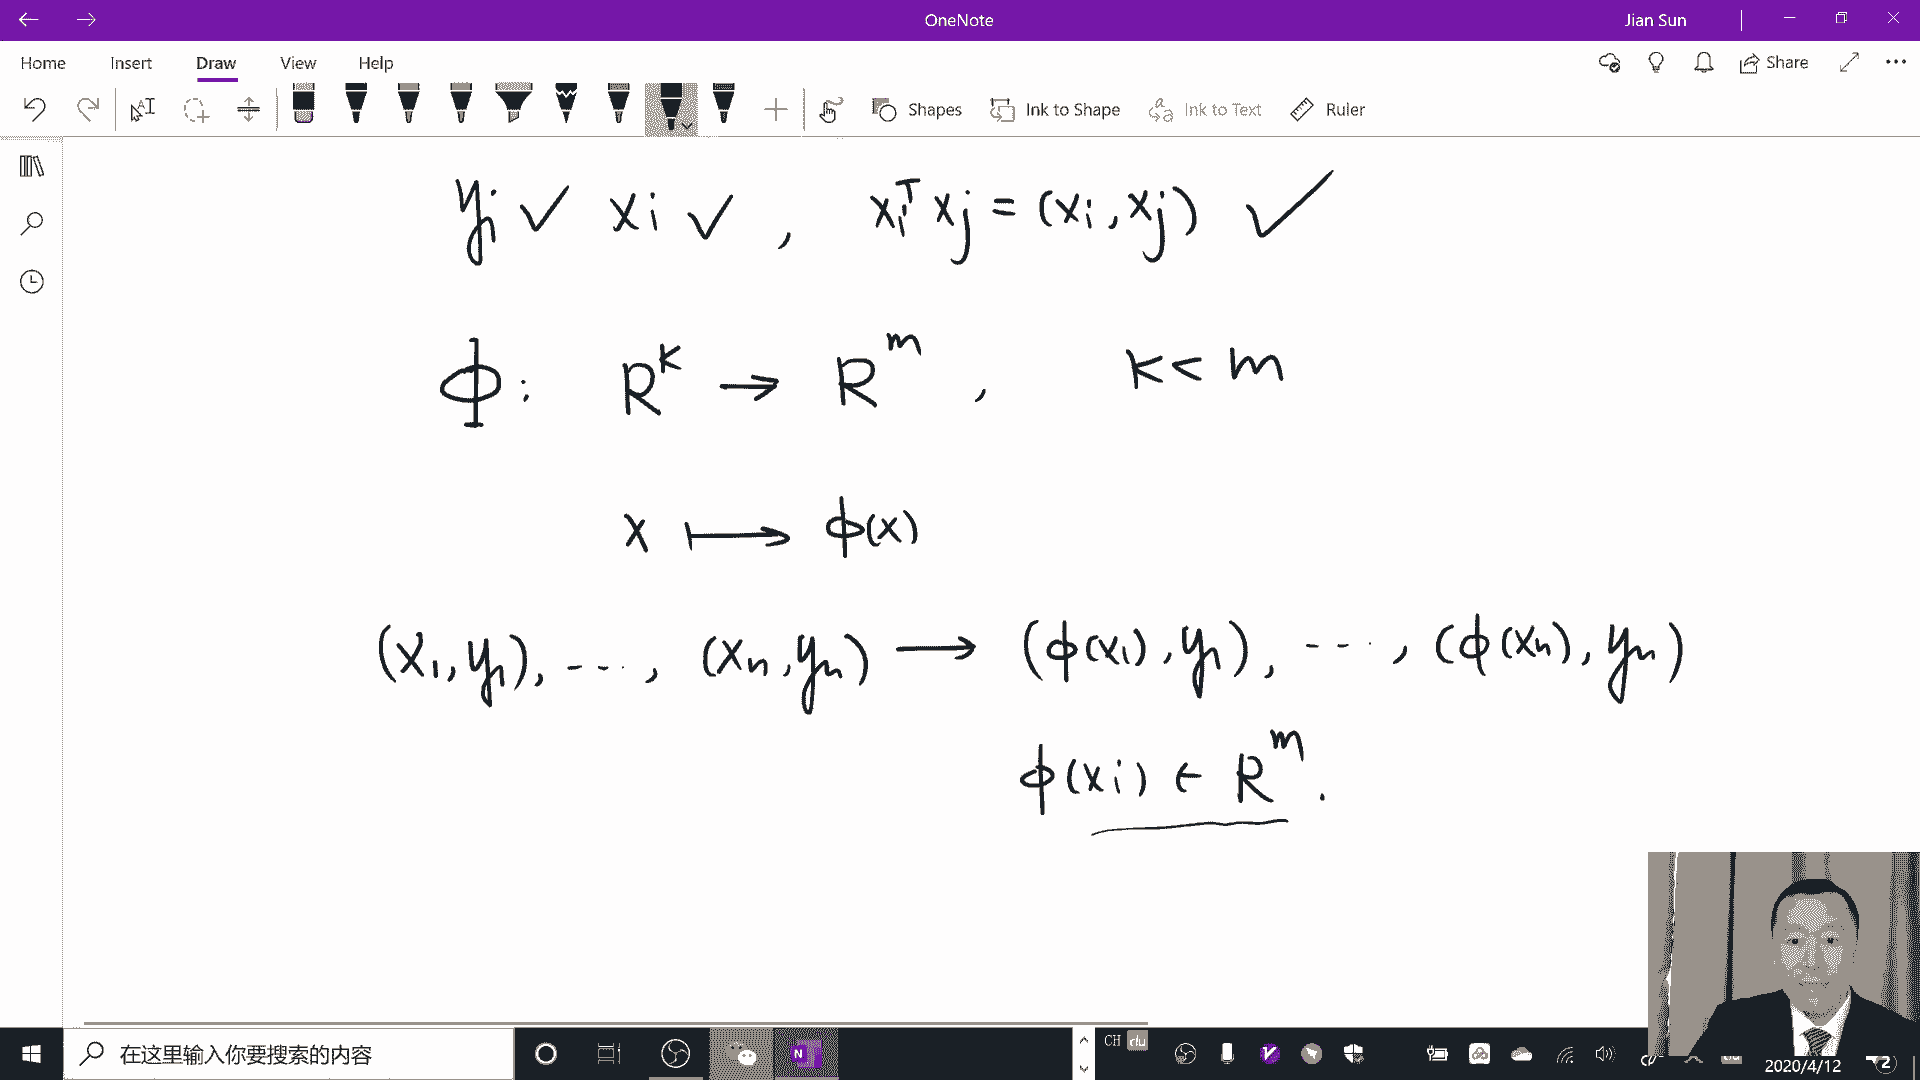 OneNote
Jian Sun
Home Insert Draw View Help
Share
Shapes Ink to Shape Ink to Text Ruler
yi ✓ xi ✓ , xiᵀ xj = (xi, xj) ✓
Φ: Rᵏ → Rᵐ, k < m
x ⟼ ϕ(x)
(x₁, y₁), ---, (xₙ, yₙ) → (ϕ(x₁), y₁), ---, (ϕ(xₙ), yₙ)
ϕ(xi) ∈ Rᵐ.
在这里输入你要搜索的内容
CH
2020/4/12
2